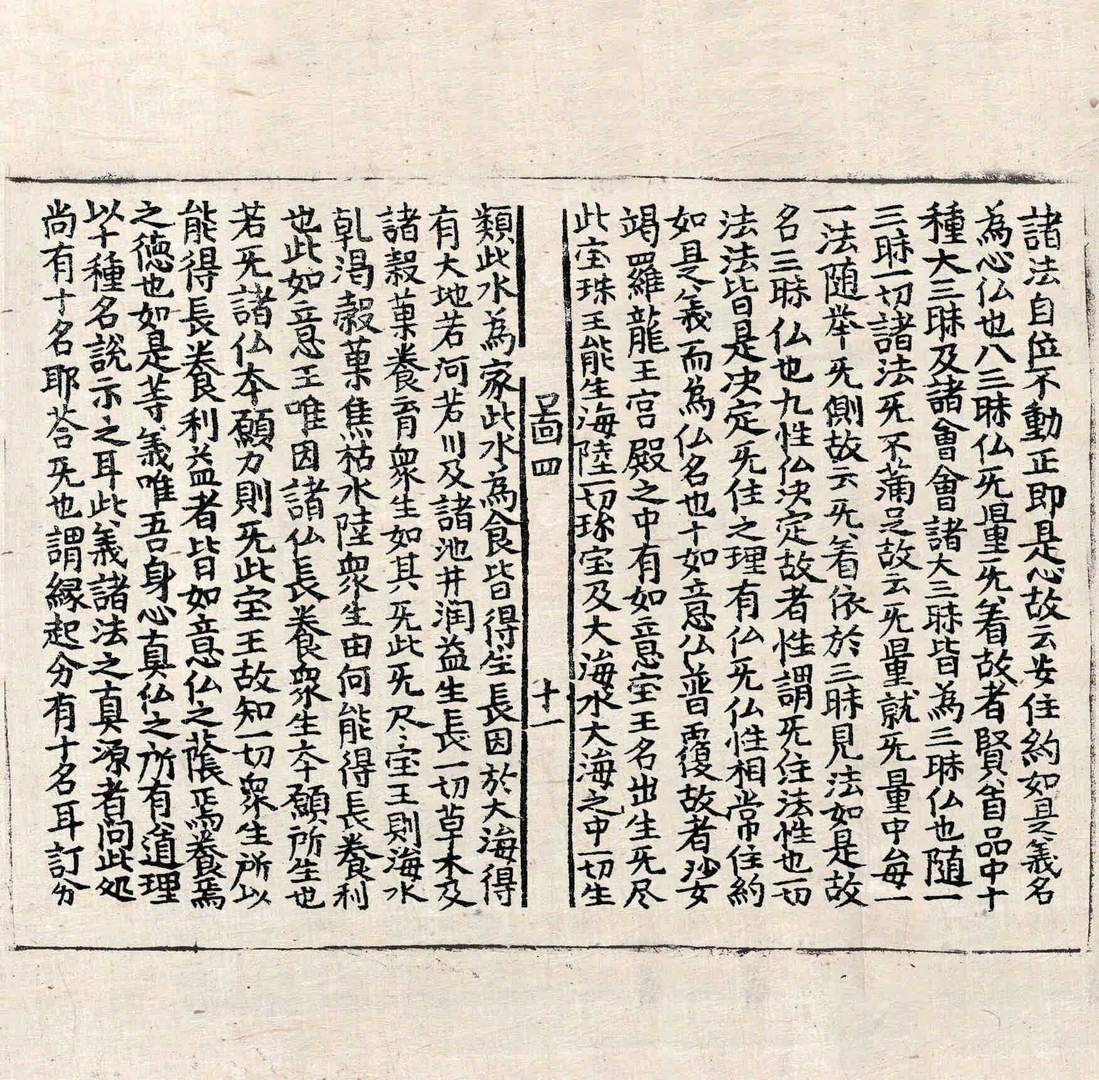 諸法自位不動正即是心故云安住約如是義名
為心仏也八三昧仏无量无着故者賢首品中十
種大三昧及諸會會諸大三昧皆為三昧仏也随一
三昧一切諸法无不蒲足故云无量就无量中每一
一法随举无側故云无着依於三昧見法如是故
名三昧仏也九性仏决定故者性謂无住法性也一切
法法皆是决定无住之理有仏无仏性相常住約
如是義而為仏名也十如意仏普覆故者沙
竭羅龍王宮殿之中有如意宝王名出生无尽
此宝珠王能生海陸一切珎宝及大海水大海之中一切生
啚四 十一
類此水為家此水為食皆得生長因於大海得
有大地若河若川及諸池井润益生長一切草木及
諸穀菓養育衆生如其无此无尽宝王則海水
乹渴穀菓焦枯水陸衆生由何能得長養利
也此如意王唯因諸仏長養衆生本願所生也
若无諸仏本願力則无此宝王故知一切衆生所以
能得長養利益者皆如意仏之蔭焉養焉
之徳也如是等義唯吾身心真仏之所有道理
以十種名說示之耳此義諸法之真源者问此処
尚有十名耶荅无也謂縁起分有十名耳訂分